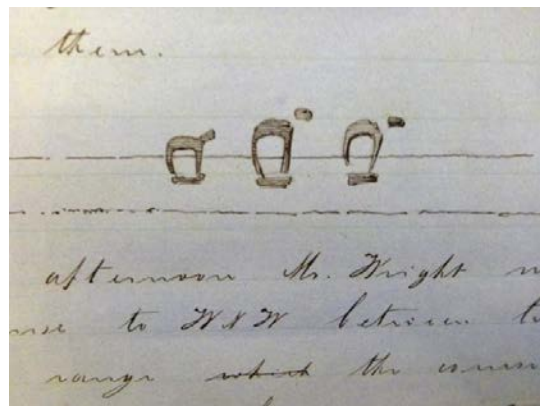 them.
afternoon Mr. Wright
to W N W between
range which the